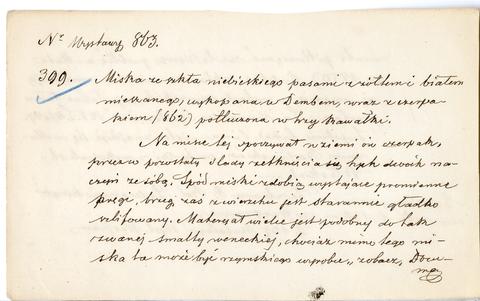 Nr Wystawy 863.
399. Miska ze szkła niebieskiego pasami z żółtem i białem
mieszanego, wykopana w Dembem, wraz z czerpa-
kiem (862) potłuczona w trzy kawałki.
Na misce tej spoczywał w ziemi ów czerpak,
przez co powstały ślady zetknięcia się tych dwóch na-
czyń ze sobą. Spód miski zdobią wystające promienne
pręgi, brzeg zaś z wierzchu jest starannie gładko
szlifowany. Materyał wielce jest podobny do tak
zwanej smalty weneckiej, chociaż mimo tego mi-
ska ta może być rzymskiego wyrobu, zobacz